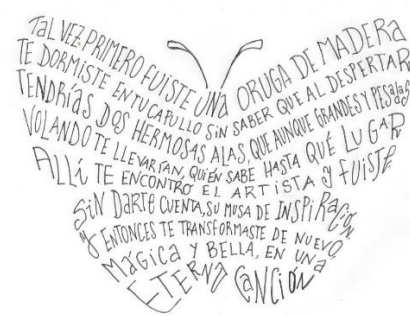 TAL VEZ PRIMERO FUISTE UNA ORUGA DE MADERA
TE DORMISTE EN TU CAPULLO SIN SABER QUE AL DESPERTAR
TENDRÍAS DOS HERMOSAS ALAS, QUE AUNQUE GRANDES Y PESADAS
VOLANDO TE LLEVARÍAN, QUIÉN SABE HASTA QUÉ LUGAR
ALLÍ TE ENCONTRÓ EL ARTISTA Y FUISTE,
SIN DARTE CUENTA, SU MUSA DE INSPIRACIÓN
Y ENTONCES TE TRANSFORMASTE DE NUEVO,
MÁGICA Y BELLA, EN UNA
ETERNA CANCIÓN